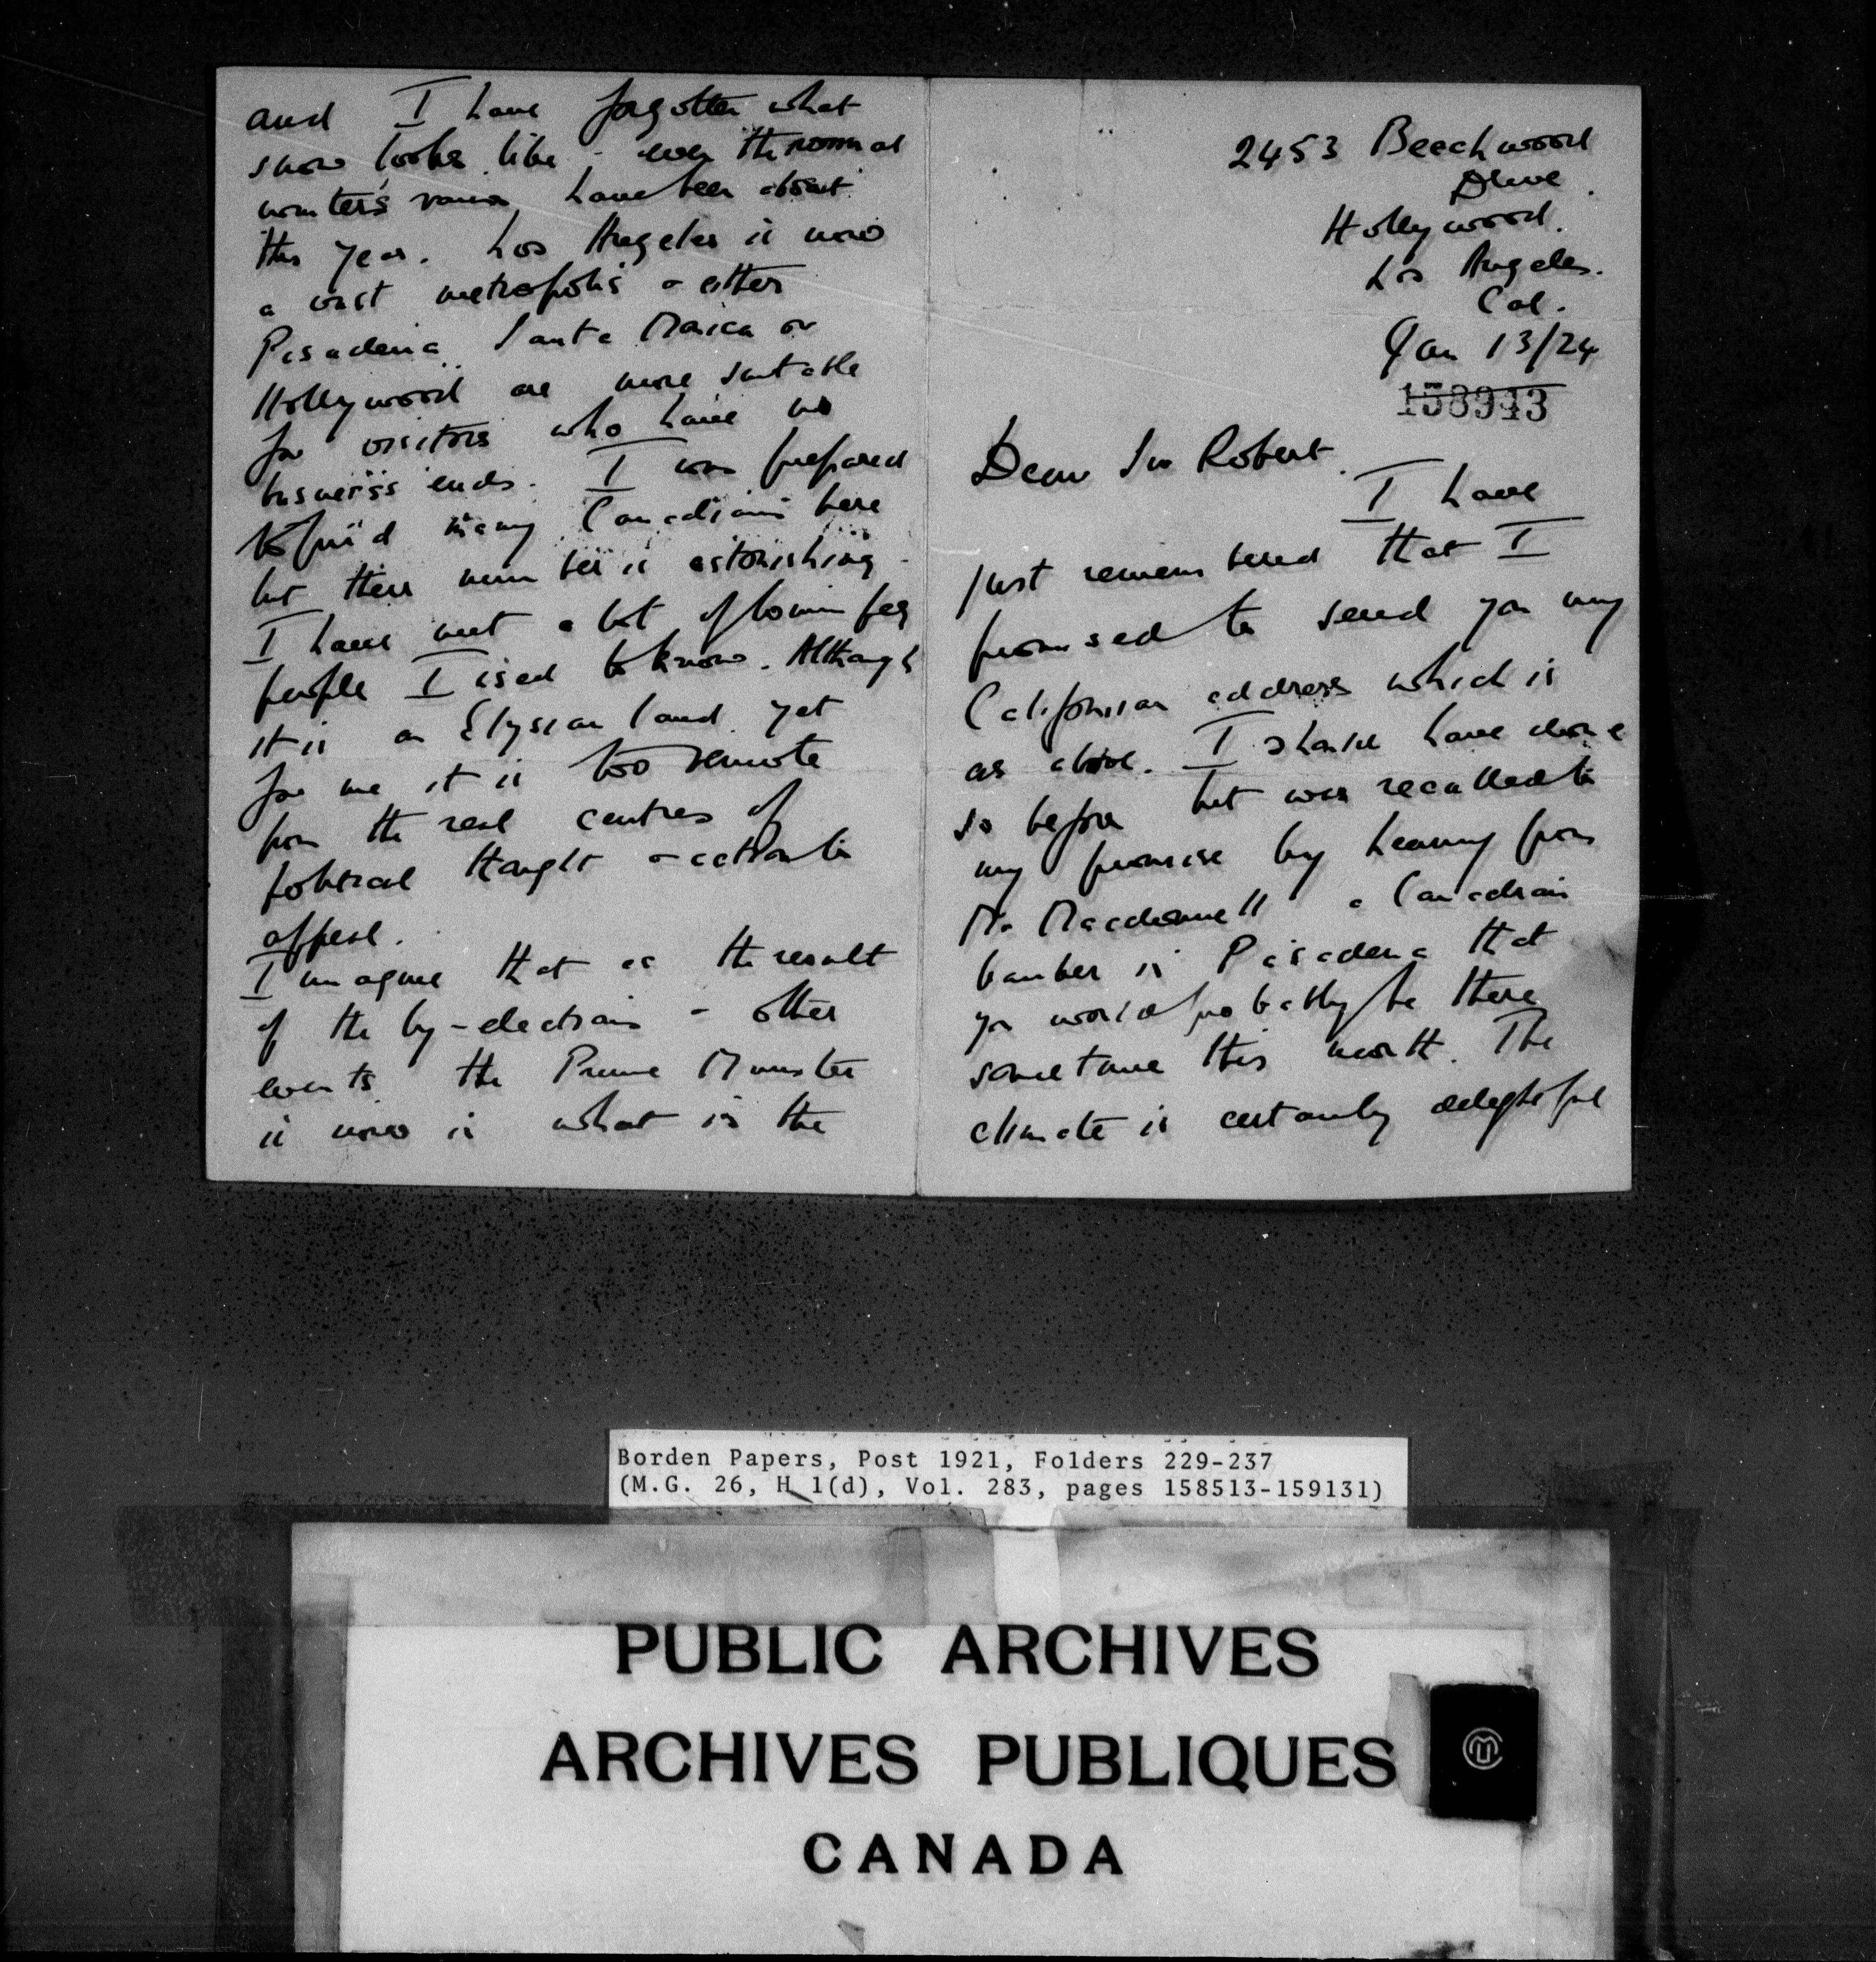 2453 Beechwood
Drive.
Hollywood.
Los Angeles.
Cal.
Jan 13/24
158943
Dear Sir Robert.
I have
just remembered that I
promised to send you my
Californian address which is
as above. I should have done
so before but was recalled to
my promise by hearing from
Mr. Macdonnell a Canadian
banker in Pasadena that
you would probably be there
sometime this month. The
climate is certainly delightful
and I have forgotten what
snow looks like - even the normal
winter's rains have been absent
this year. Los Angeles is now
a vast metropolis & either
Pasadena Santa Monica or
Hollywood are more suitable
for visitors who have no
business ends. I was prepared
to find many Canadians here
but their number is astonishing -
I have met a lot of Winnipeg
people I used to know. Although
it is an Elysian land yet
for me it is too remote
from the real centres of
political thought & action to
appeal.
I imagine that as the result
of the by-elections & other
events the Prime Minister
is now in what is the
Borden Papers, Post 1921, Folders 229-237
(M.G. 26, H 1(d), Vol. 283, pages 158513-159131)
PUBLIC ARCHIVES
ARCHIVES PUBLIQUES
CANADA